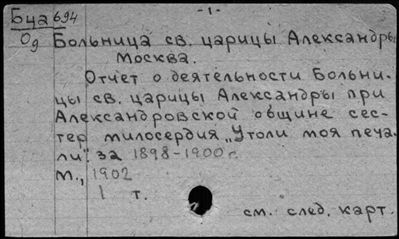 Бца 694
-1-
Од
Больница св. царицы Александры
Москва.
Отчет о деятельности Больни-
цы св. царицы Александры при
Александровской общине сес-
тер милосердия „Утоли моя печа-
ли". за 1898-1900 г.
М., 1902
1 т.
см. след. карт.